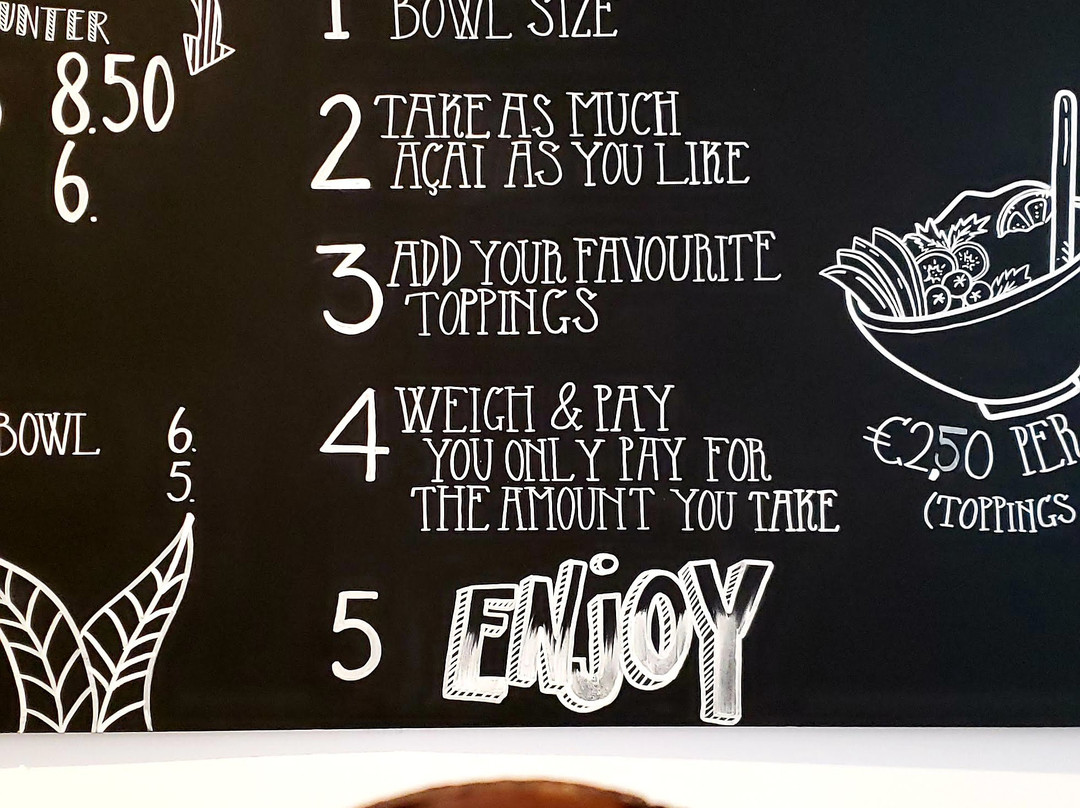 UNTER
8.50
6.
BOWL 6.
5.
1 BOWL SIZE
2 TAKE AS MUCH
AÇAI AS YOU LIKE
3 ADD YOUR FAVOURITE
TOPPINGS
4 WEIGH & PAY
YOU ONLY PAY FOR
THE AMOUNT YOU TAKE
5 ENJOY
€2,50 PER
(TOPPINGS